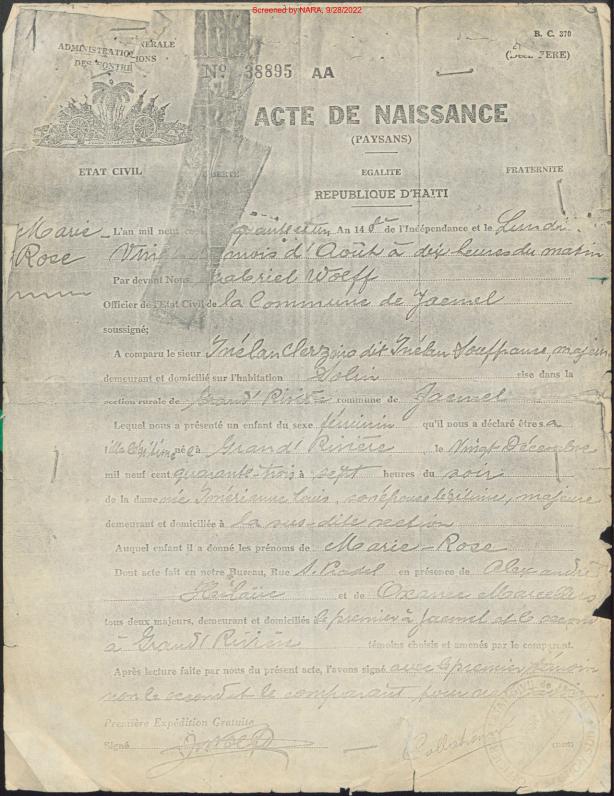 Screened by NARA, 9/28/2022
B. C. 370
ADMINISTRATION GÉNÉRALE
DES CONTRIBUTIONS
No 38895 AA
ACTE DE NAISSANCE
(PAYSANS)
ETAT CIVIL LIBERTÉ EGALITE FRATERNITE
REPUBLIQUE D'HAITI
Marie Rose
L'an mil neuf cent An 148e de l'Indépendance et le Lundi
mois d'Août à dix heures du matin
Par devant Nous Gabriel Wolff
Officier de l'Etat Civil de la Commune de Jacmel
soussigné;
A comparu le sieur Inélan dit Inélan Souffrance, majeur
demeurant et domicilié sur l'habitation sise dans la
section rurale de Grand' Rivière commune de Jacmel
Lequel nous a présenté un enfant du sexe féminin qu'il nous a déclaré être sa
fille légitime née à Grand' Rivière le Vingt Décembre
mil neuf cent quarante-trois à sept heures du soir
de la dame née Louis, son épouse légitime, majeure
demeurant et domiciliée à la sus-dite section
Auquel enfant il a donné les prénoms de Marie-Rose
Dont acte fait en notre Bureau, Rue en présence de Alexandre
Hilaire et de
tous deux majeurs, demeurant et domiciliés le premier à Jacmel et le second
à Grand' Rivière témoins choisis et amenés par le comparant.
Après lecture faite par nous du présent acte, l'avons signé avec le premier témoin
non le second et le comparant pour ne savoir
Première Expédition Gratuite
Signé